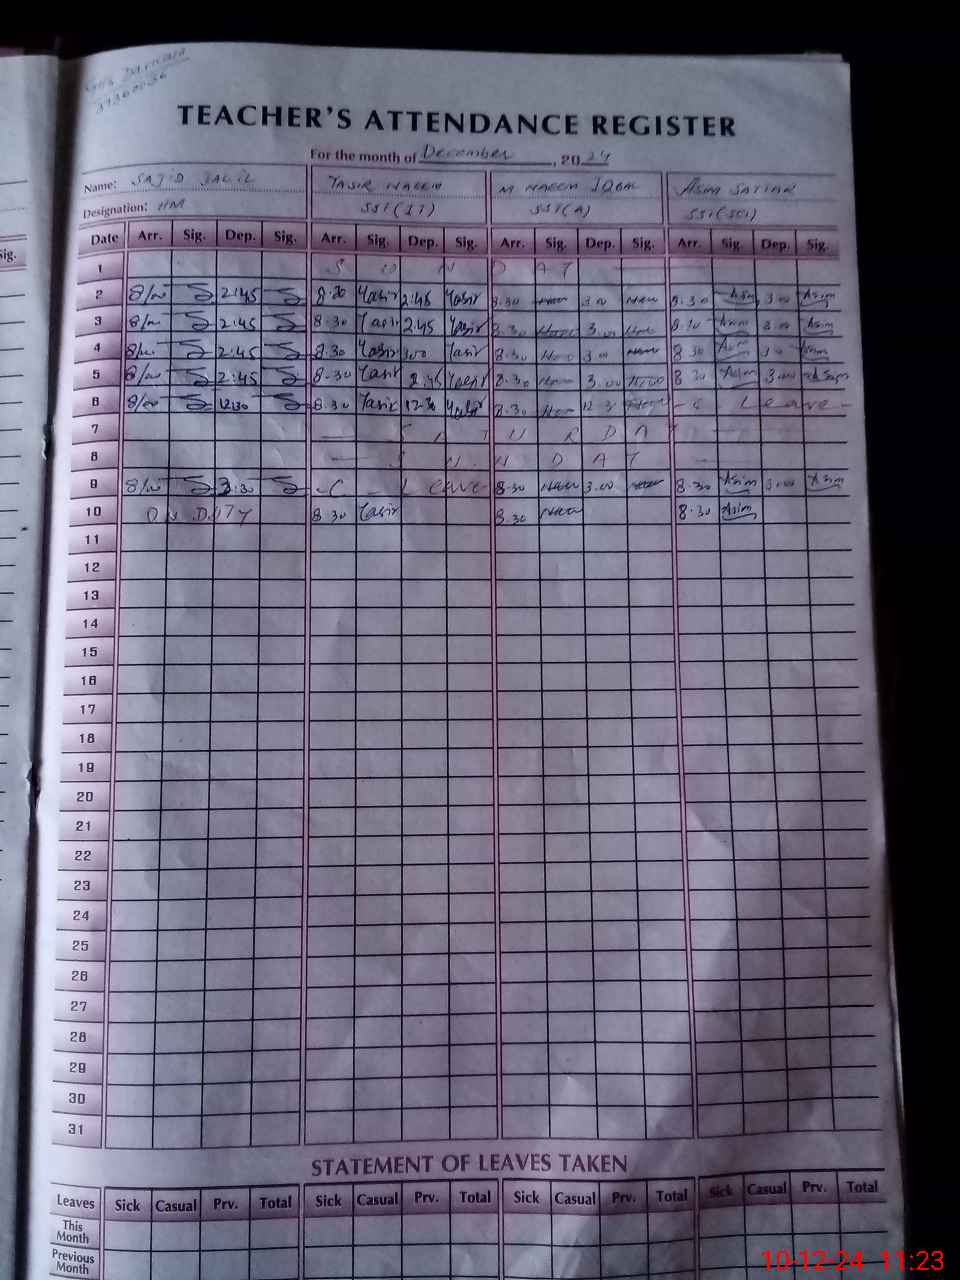 37360036
TEACHER'S ATTENDANCE REGISTER
For the month of December, 2024
Name: SAJID JALIL YASIR NAEEM M NAEEM IQBAL ASIM SATTAR
Designation: HM SST(IT) SST(A) SST(SCI)
Date Arr. Sig. Dep. Sig. Arr. Sig. Dep. Sig. Arr. Sig. Dep. Sig. Arr. Sig. Dep. Sig.
1 S U N D A Y
2 8/00 2:45 8.30 Yasir 2:45 Yasir 8.30 3.00 8.30 Asim 3.00 Asim
3 8/00 2:45 8.30 Yasir 2.45 Yasir 8.30 3.00 8.30 Asim 3.00 Asim
4 8/00 2:45 8.30 Yasir 3.00 Yasir 8.30 3.00 8.30 Asim 3.00 Asim
5 8/00 2:45 8.30 Yasir 2.45 Yasir 8.30 3.00 8.30 Asim 3.00
6 8/00 12:30 8.30 Yasir 12.30 Yasir 8.30 12.30 - C. Leave -
7 — S A T U R D A Y —
8 — S U N D A Y —
9 8/00 3:30 - C - Leave - 8.30 3.00 8.30 Asim 3.00 Asim
10 ON DUTY 8.30 Yasir 8.30 8.30 Asim
11
12
13
14
15
16
17
18
19
20
21
22
23
24
25
26
27
28
29
30
31
STATEMENT OF LEAVES TAKEN
Leaves Sick Casual Prv. Total Sick Casual Prv. Total Sick Casual Prv. Total Sick Casual Prv. Total
This
Month
Previous
Month
10-12-24 11:23